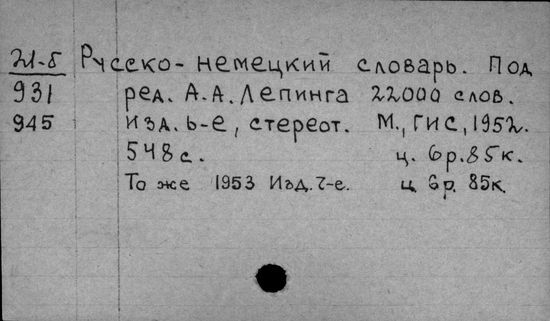 21-5 Русско-немецкий словарь. Под
931 ред. А.А. Лепинга 22000 слов.
945 изд. 6-е, стереот. М., ГИС, 1952.
548 с. ц. 6р. 85к.
То же 1953 Изд. 7-е. ц. 6р. 85к